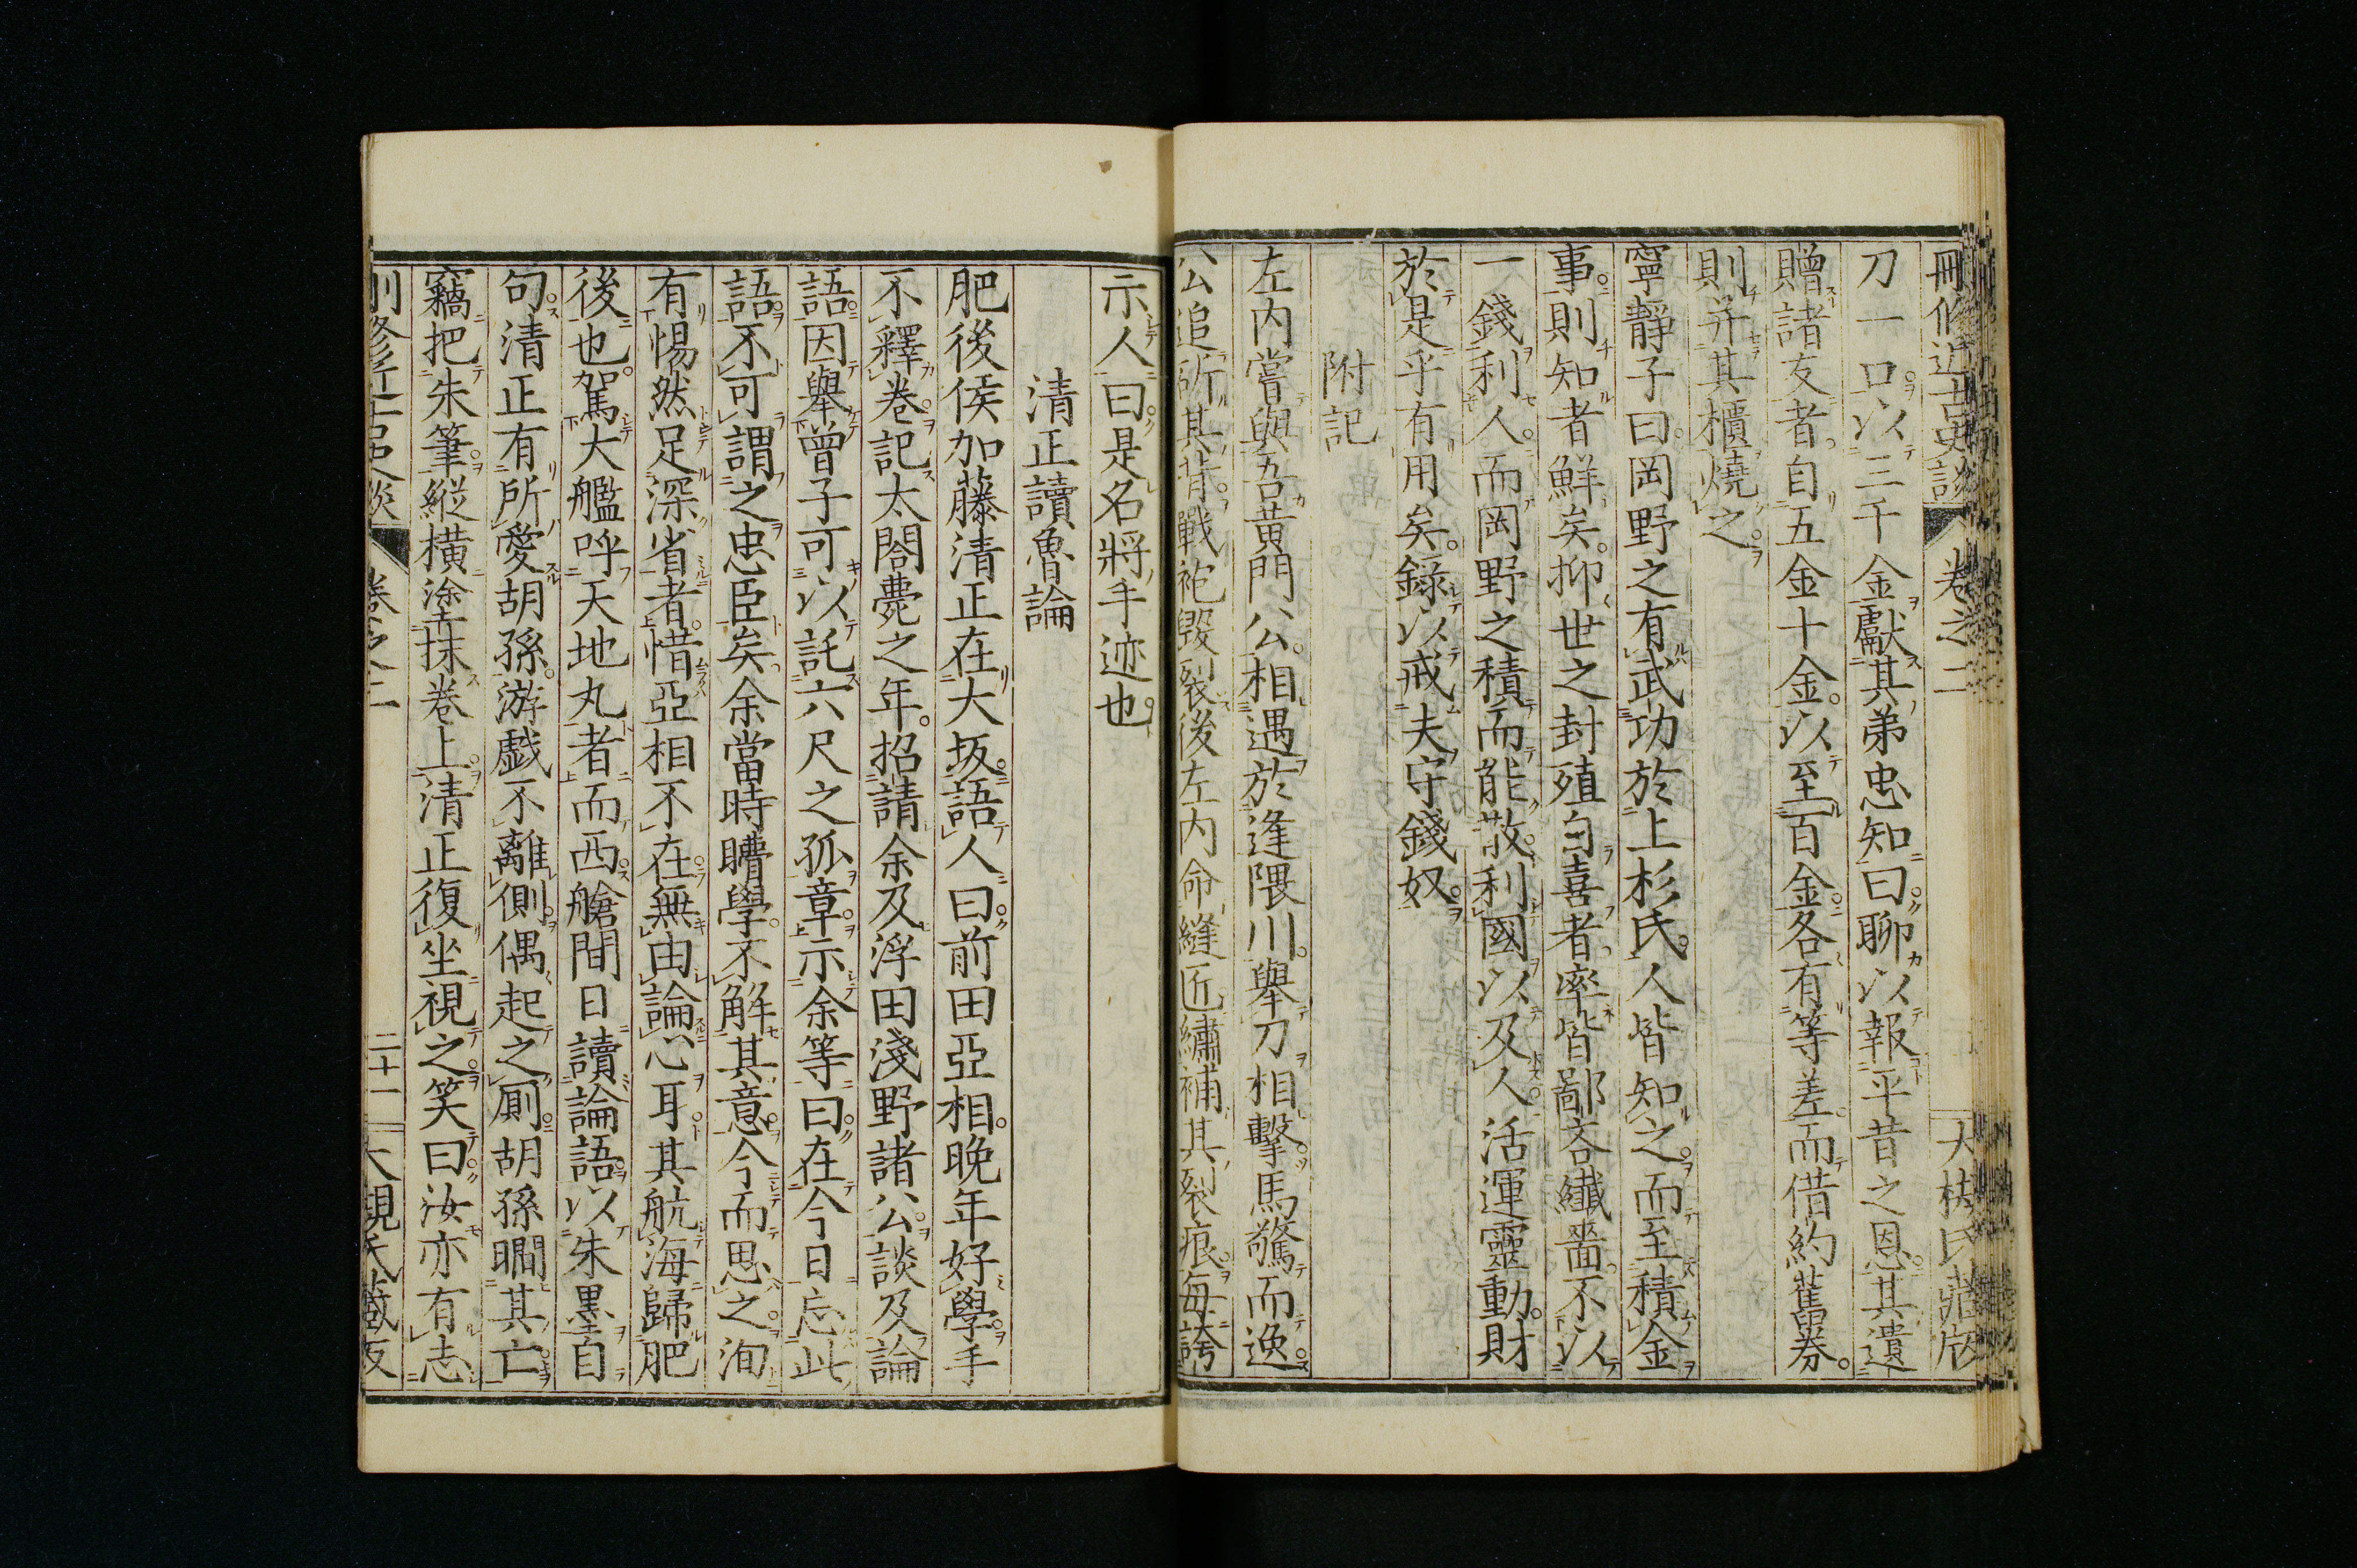 刪修近古史談 卷之二 大槻氏藏版
刀一口以三千金獻其弟忠知曰聊以報平昔之恩其遺
贈諸友者自五金十金以至百金各有等差而借約舊券
則并其櫃燒之
寧靜子曰岡野之有武功於上杉氏人皆知之而至積金
事則知者鮮矣抑世之封殖自喜者率皆鄙吝纖嗇不以
一錢利人而岡野之積而能散利國以及人活運靈動財
於是乎有用矣錄以戒夫守錢奴
附記
左內嘗與吾黃門公相遇於逢隈川舉刀相擊馬驚而逸
公追斫其背戰袍毀裂後左內命縫匠繡補其裂痕每誇
示人曰是名將手迹也
清正讀魯論
肥後侯加藤清正在大坂語人曰前田亞相晚年好學手
不釋卷記太閤薨之年招請余及浮田淺野諸公談及論
語因舉曾子可以託六尺之孤章示余等曰在今日忘此
語不可謂之忠臣矣余當時瞢學不解其意今而思之洵
有惕然足深省者惜亞相不在無由論心耳其航海歸肥
後也駕大艦呼天地丸者而西艙間日讀論語以朱墨自
句清正有所愛胡孫游戲不離側偶起之厠胡孫瞯其亡
竊把朱筆縱橫塗抹卷上清正復坐視之笑曰汝亦有志
刪修近古史談 卷之二 二十一 大槻氏藏版